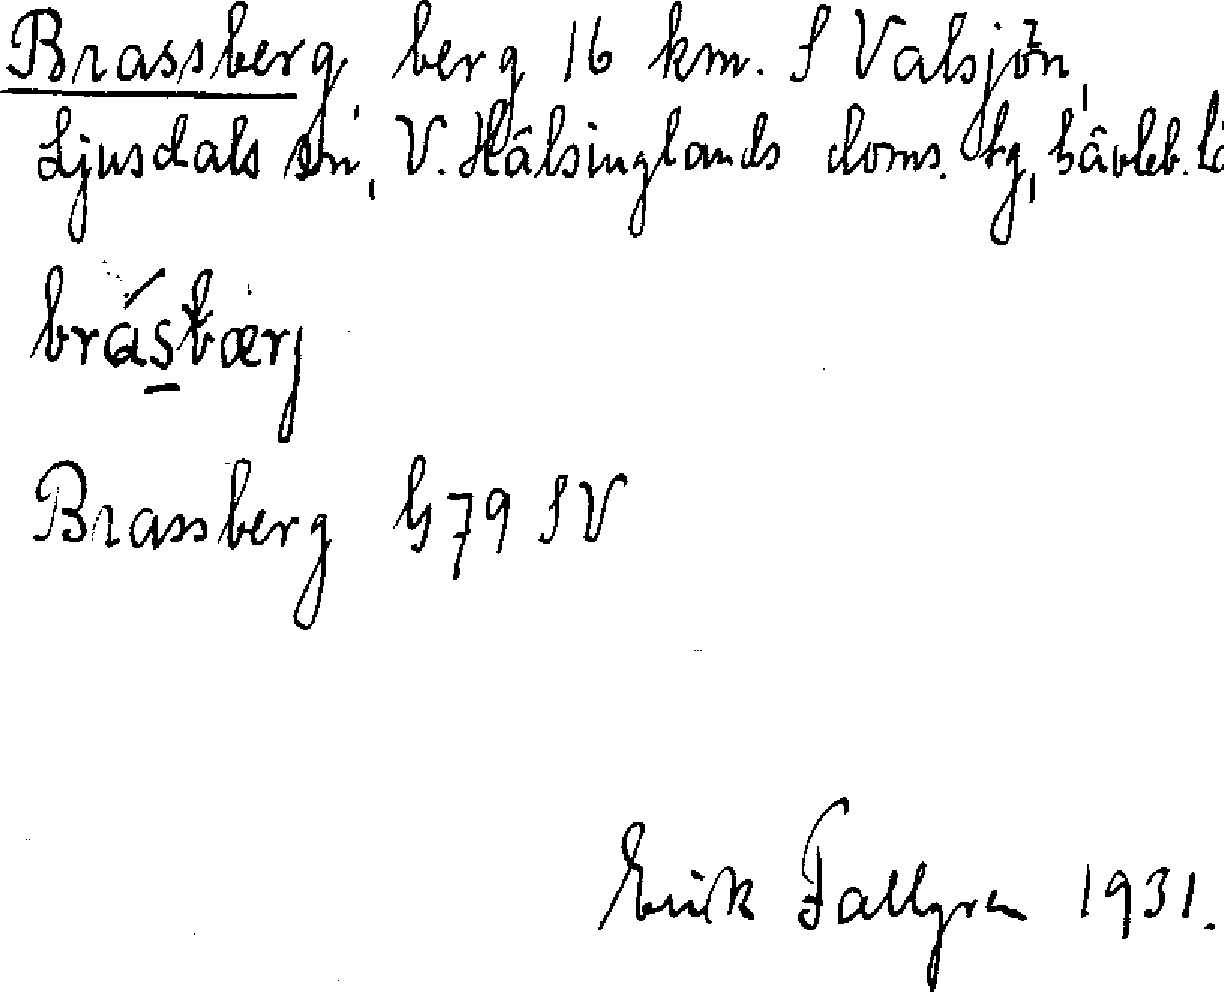 Brassberg, berg 16 km. S Valsjön,
Ljusdals sn, V. Hälsinglands doms. tg, Gävleb. lä
brásbærj
Brassberg G79 SV
Erik Fallgren 1931.